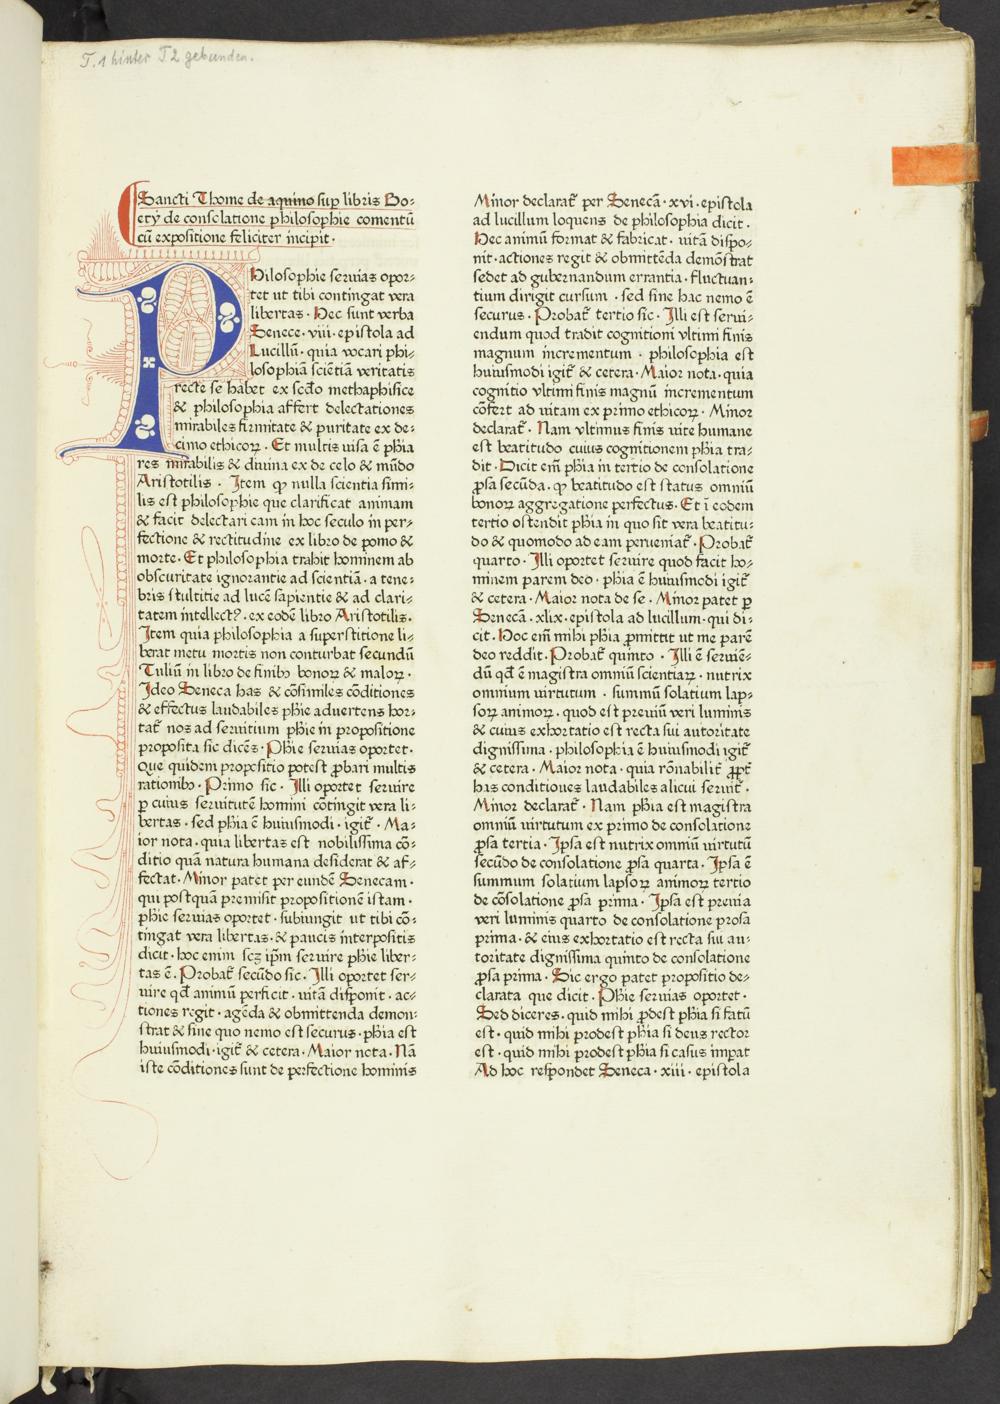 T. 1 hinter T 2 gebunden.
Sancti Thome de aquino sup libris Bo⸗
etÿ de consolatione philosophie comentū
cū expositione feliciter incipit ·
Philosophie seruias opor⸗
tet ut tibi contingat vera
libertas · Hec sunt verba
Senece · viii · epistola ad
Lucillū · quia vocari phi⸗
losophiā scientiā veritatis
recte se habet ex scd̄o methaphisice
& philosophia affert delectationes
mirabiles firmitate & puritate ex de⸗
cimo ethicoꝝ · Et multis uisa ē ph̄ia
res mirabilis & diuina ex de celo & mūdo
Aristotilis · Item ꝙ nulla scientia simi⸗
lis est philosophie que clarificat animam
& facit delectari eam in hoc seculo in per⸗
fectione & rectitudine ex libro de pomo &
morte · Et philosophia trahit hominem ab
obscuritate ignorantie ad scientiā · a tene⸗
bris stultitie ad lucē sapientie & ad clari⸗
tatem intellectꝰ · ex eodē libro Aristotilis ·
Item quia philosophia a superstitione li⸗
berat metu mortis non conturbat secundū
Tuliū in libro de finibꝫ bonoꝝ & maloꝝ ·
Ideo Seneca has & cōsimiles cōditiones
& effectus laudabiles ph̄ie aduertens hor⸗
tat᷑ nos ad seruitium ph̄ie in propositione
proposita sic dicēs · Ph̄ie seruias oportet ·
Que quidem propositio potest ꝓbari multis
rationibꝫ · Primo sic · Illi oportet seruire
ꝑ cuius seruitutē homini cōtingit vera li⸗
bertas · sed ph̄ia ē huiusmodi · igit᷑ · Ma⸗
ior nota · quia libertas est nobilissima cō⸗
ditio quā natura humana desiderat & af⸗
fectat · Minor patet per eundē Senecam ·
qui postquā premisit propositionē istam ·
ph̄ie seruias oportet · subiungit ut tibi cō⸗
tingat vera libertas · & paucis interpositis
dicit · hoc enim scꝫ ip̄m seruire ph̄ie liber⸗
tas ē · Probat᷑ secūdo sic · Illi oportet ser⸗
uire qd̄ animū perficit · uitā disponit · ac⸗
tiones regit · agēda & obmittenda demon⸗
strat & sine quo nemo est securus · ph̄ia est
huiusmodi · igit᷑ & cetera · Maior nota · Nā
iste cōditiones sunt de perfectione hominis
Minor declarat᷑ per Senecā · xvi · epistola
ad lucillum loquens de philosophia dicit ·
Hec animū format & fabricat · uitā dispo⸗
nit · actiones regit & obmittēda demōstrat
sedet ad gubernandum errantia · fluctuan⸗
tium dirigit cursum · sed sine hac nemo ē
securus · Probat᷑ tertio sic · Illi est serui⸗
endum quod tradit cognitioni vltimi finis
magnum incrementum · philosophia est
huiusmodi igit᷑ & cetera · Maior nota · quia
cognitio vltimi finis magnū incrementum
cōfert ad uitam ex primo ethicoꝝ · Minor
declarat᷑ · Nam vltimus finis uite humane
est beatitudo cuius cognitionem ph̄ia tra⸗
dit · Dicit em̄ ph̄ia in tertio de consolatione
ꝓsa secūda · ꝙ beatitudo est status omniū
bonoꝝ aggregatione perfectus · Et ī eodem
tertio ostendit ph̄ia in quo sit vera beatitu⸗
do & quomodo ad eam perueniat᷑ · Probat᷑
quarto · Illi oportet seruire quod facit ho⸗
minem parem deo · ph̄ia ē huiusmodi igit᷑
& cetera · Maior nota de se · Minor patet ꝑ
Senecā · xlix · epistola ad lucillum · qui di⸗
cit · Hoc em̄ mihi ph̄ia ꝓmittit ut me parē
deo reddit · Probat᷑ quinto · Illi ē seruiē⸗
dū qd̄ ē magistra omniū scientiaꝝ · nutrix
omnium uirtutum · summū solatium lap⸗
soꝝ animoꝝ · quod est preuiū veri luminis
& cuius exhortatio est recta sui autoritate
dignissima · philosophia ē huiusmodi igit᷑
& cetera · Maior nota · quia rōnabilit᷑ ꝓpt᷑
has conditiones laudabiles alicui seruit᷑ ·
Minor declarat᷑ · Nam ph̄ia est magistra
omniū uirtutum ex primo de consolatione
ꝓsa tertia · Ipsa est nutrix omniū uirtutū
secūdo de consolatione ꝓsa quarta · Ipsa ē
summum solatium lapsoꝝ animoꝝ tertio
de cōsolatione ꝓsa prima · Ipsa est preuia
veri luminis quarto de consolatione prosa
prima · & eius exhortatio est recta sui au⸗
toritate dignissima quinto de consolatione
ꝓsa prima · Sic ergo patet propositio de⸗
clarata que dicit · Ph̄ie seruias oportet ·
Sed diceres · quid mihi ꝓdest ph̄ia si fatū
est · quid mihi prodest ph̄ia si deus rector
est · quid mihi prodest ph̄ia si casus impat
Ad hoc respondet Seneca · xiii · epistola